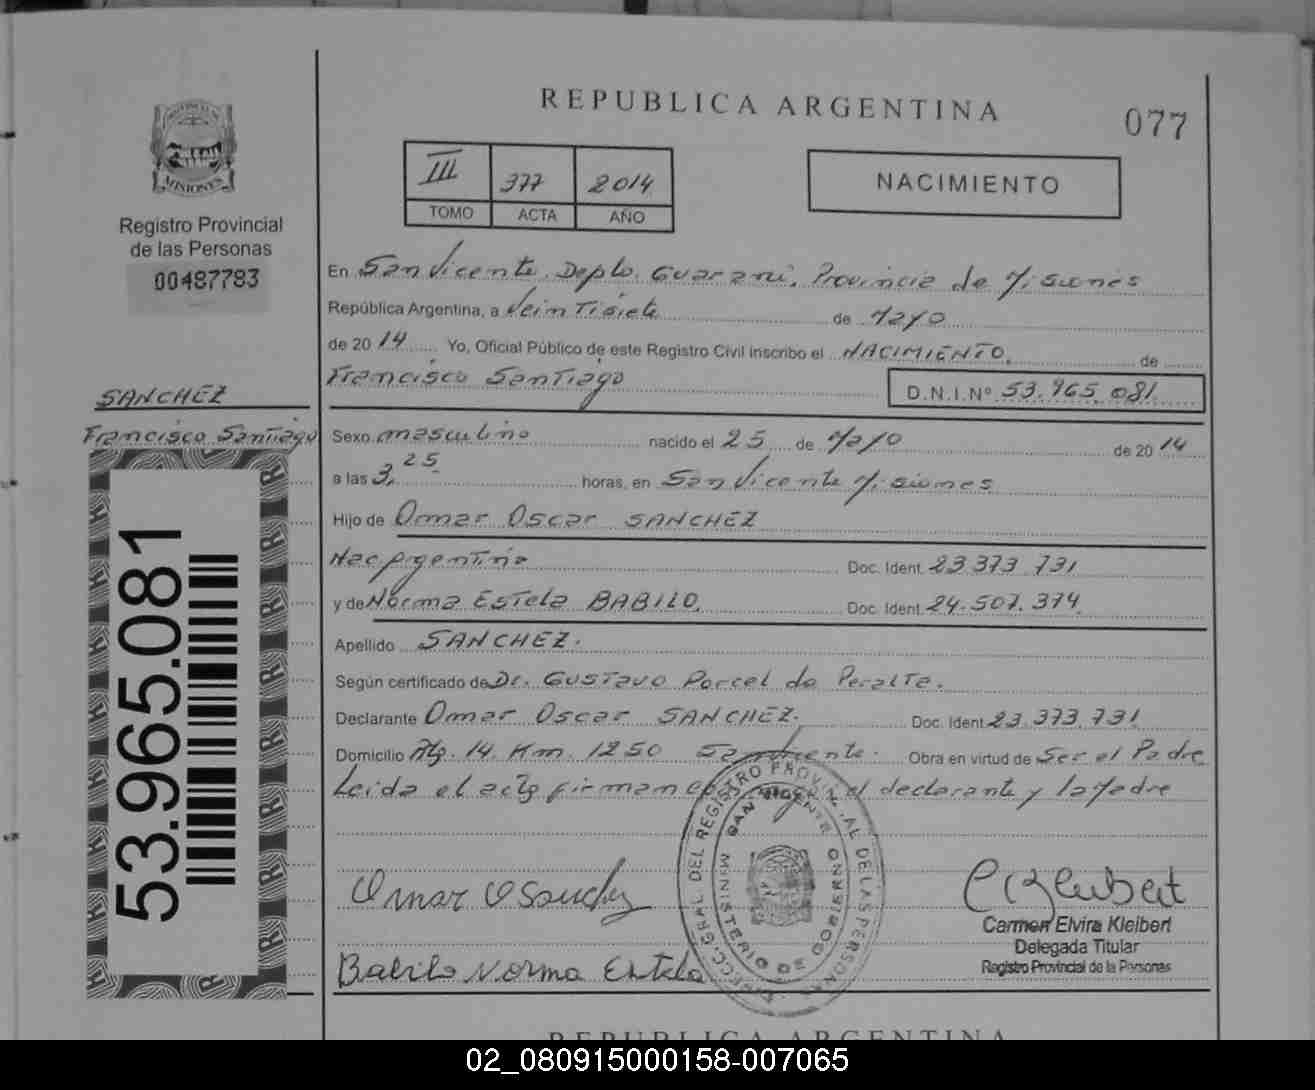 REPUBLICA ARGENTINA
077
PROVINCIA DE
MISIONES
Registro Provincial
de las Personas
00487783
III 377 2014
TOMO ACTA AÑO
NACIMIENTO
En San Vicente, Depto. Guaraní, Provincia de Misiones
República Argentina, a Veintisiete de Mayo
de 2014 Yo, Oficial Público de este Registro Civil inscribo el NACIMIENTO. de
Francisco Santiago D.N.I.Nº 53.965.081
SANCHEZ
Francisco Santiago
Sexo masculino nacido el 25 de Mayo de 2014
a las 3,25 horas, en San Vicente Misiones
Hijo de Omar Oscar SANCHEZ
Nac Argentina Doc. Ident. 23.373.731
y de Norma Estela BABILO, Doc. Ident. 24.507.374
Apellido SANCHEZ.
Según certificado de Dr. Gustavo Porcel de Peralta.
Declarante Omar Oscar SANCHEZ. Doc. Ident 23.373.731
Domicilio 14. Km. 1250 San Vicente. Obra en virtud de Ser el Padre
Leida el acta firman el declarante y la Madre
53.965.081
DIRECC. GRAL. DEL REGISTRO PROVIN.AL DE LAS PERSONAS
SAN VICENTE
MINISTERIO DE GOBIERNO
Omar O Sanchez
Babilo Norma Estela
Carmen Elvira Kleibert
Delegada Titular
Registro Provincial de la Personas
REPUBLICA ARGENTINA
02_080915000158-007065